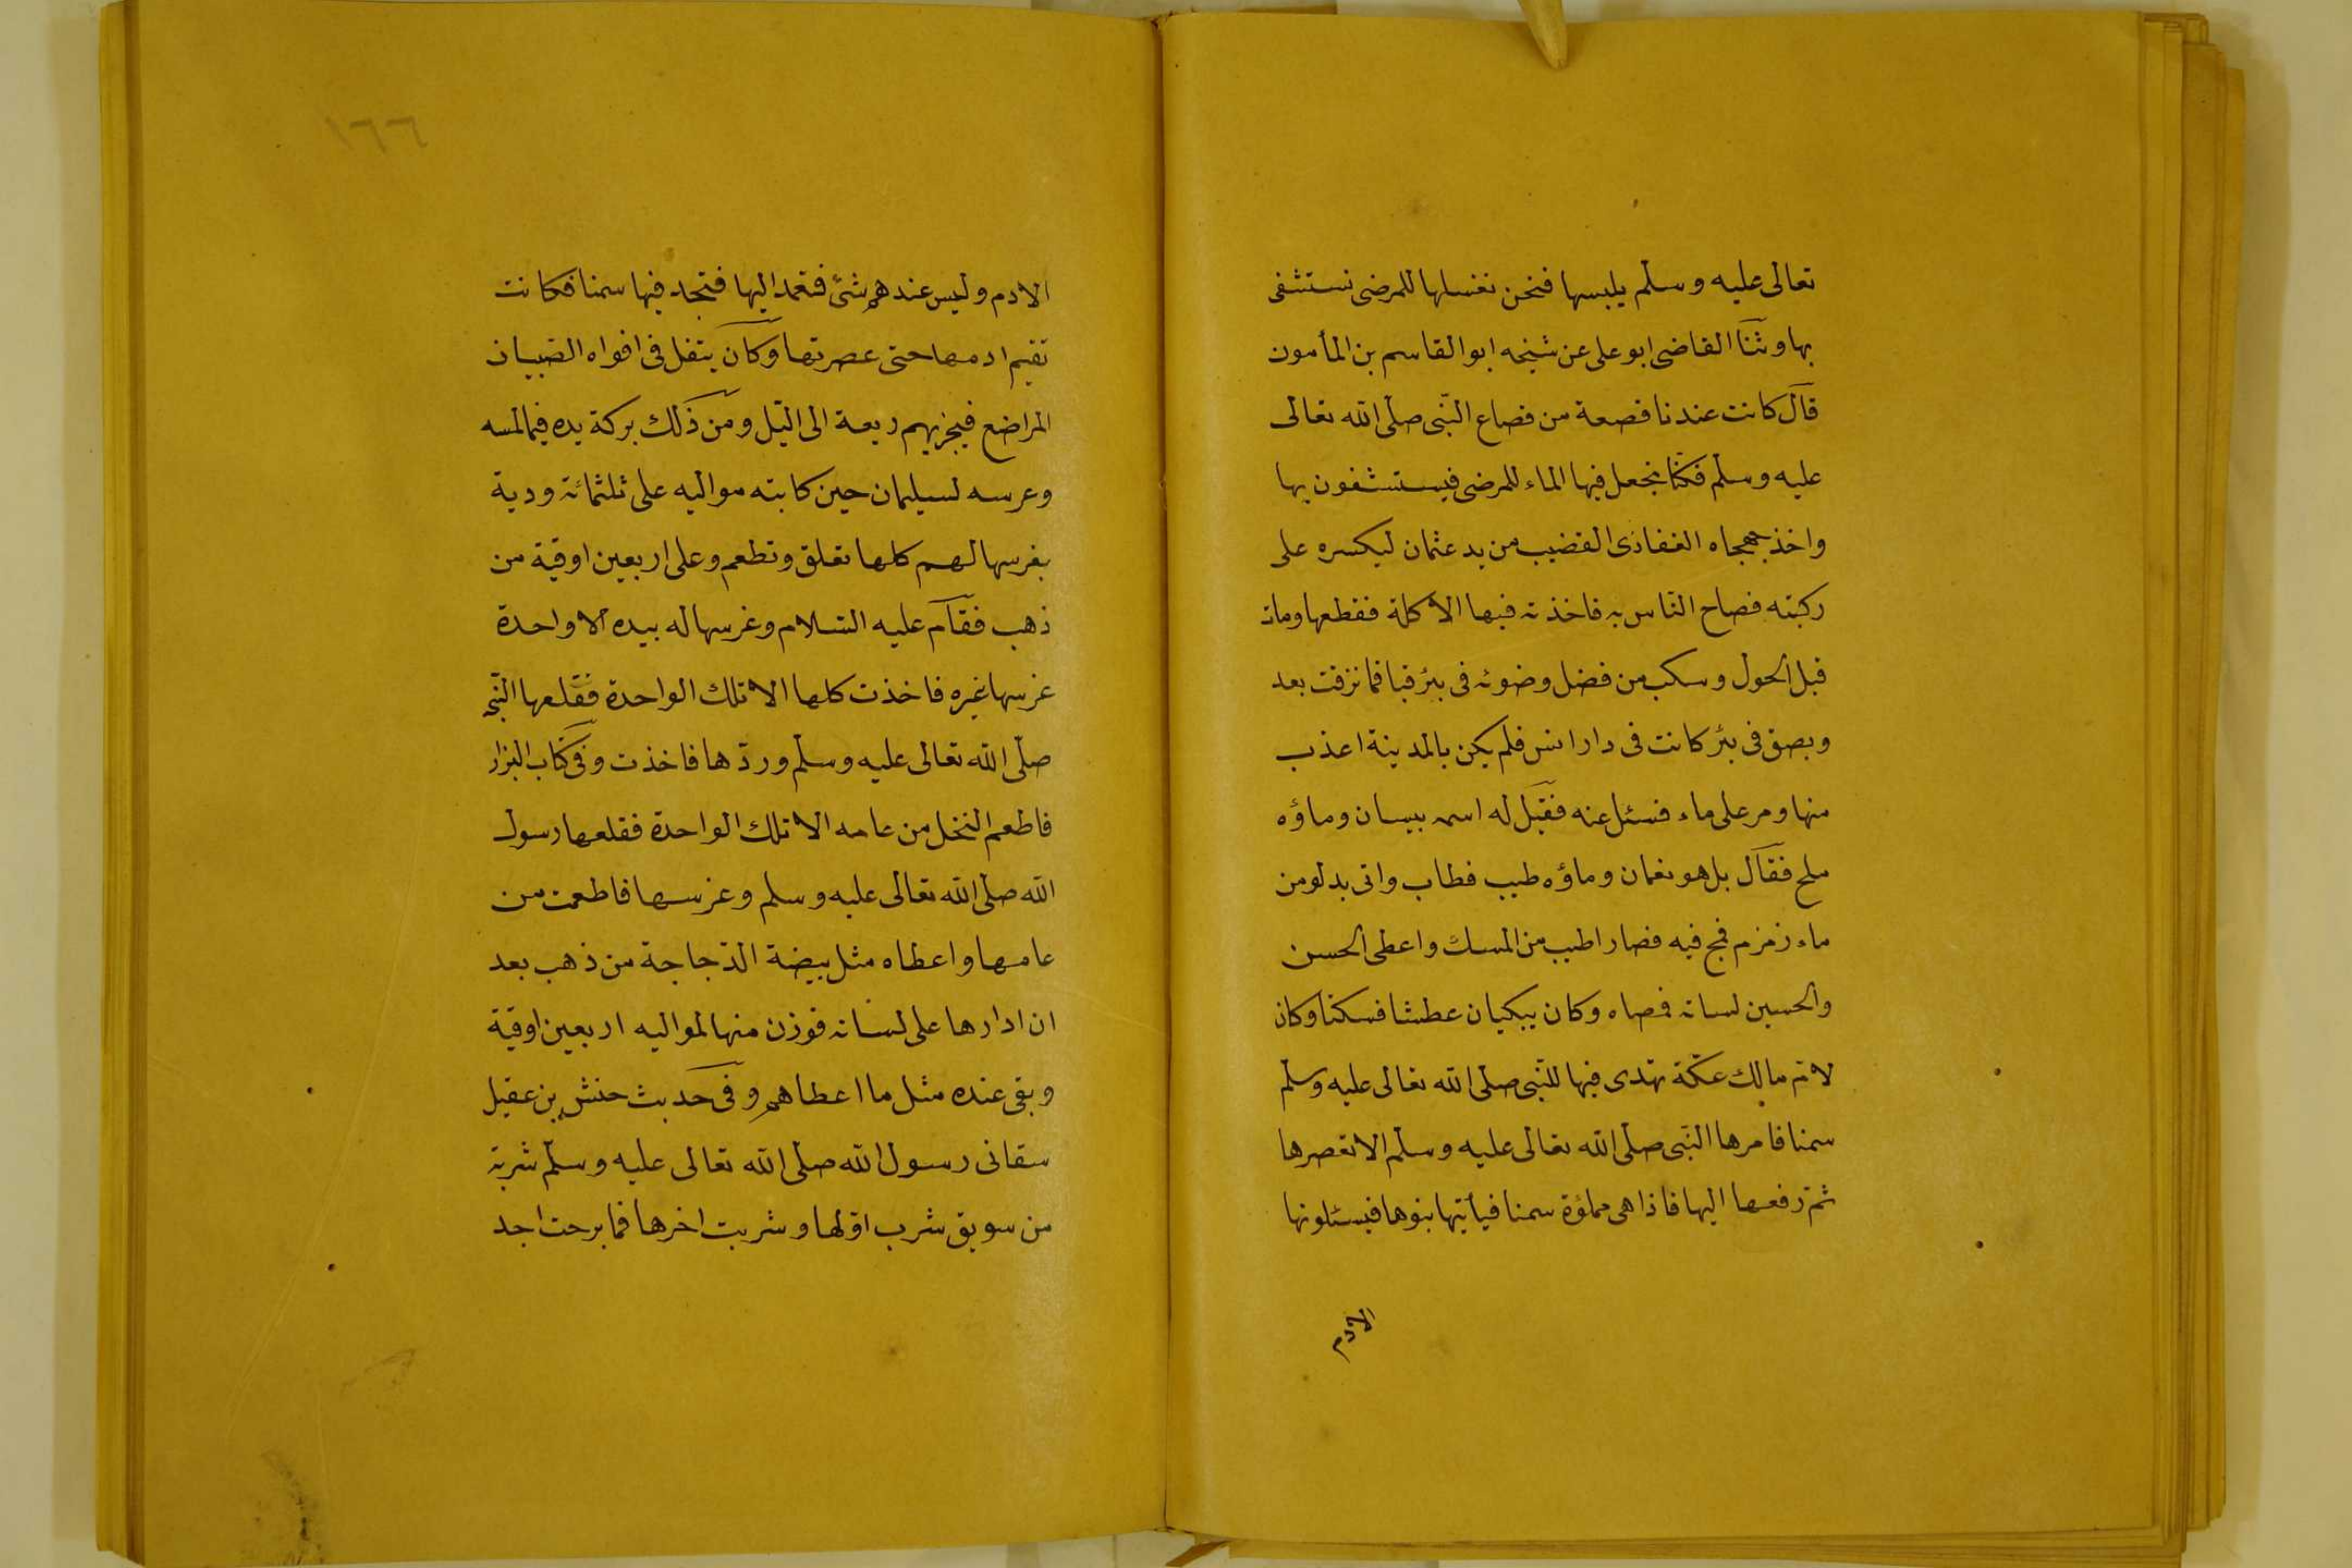 تعالى عليه وسلم يلبسها فنحن نغسلها للمرضى نستشفى
بها وثنا القاضى ابو على عن شيخه ابو القاسم بن المأمون
قال كانت عندنا قصعة من قصاع النّبى صلّى الله تعالى
عليه وسلّم فكنّا نجعل فيها الماء للمرضى فيستشفون بها
واخذ جهجاه الغفارى القضيب من يد عثمان ليكسره على
ركبته فصاح النّاس به فاخذته فيها الاكلة فقطعها ومات
قبل الحول وسكب من فضل وضوئه فى بئر قبا فما نزفت بعد
وبصق فى بئر كانت فى دار انس فلم يكن بالمدينة اعذب
منها ومر على ماء فسئل عنه فقيل له اسمه بيسان وماؤه
ملح فقال بل هو نعمان وماؤه طيب فطاب واتى بدلو من
ماء زمزم فمج فيه فصار اطيب من المسك واعطى الحسن
والحسين لسانه فمصاه وكان يبكيان عطشا فسكتا وكان
لامّ مالك عكّة تهدى فيها للنّبى صلّى الله تعالى عليه وسلّم
سمنا فامرها النّبى صلّى الله تعالى عليه وسلّم الا تعصرها
ثمّ رفعها اليها فاذا هى مملؤة سمنا فيأتيها بنوها فيسئلونها
الادم
١٦٦
الادم وليس عندهم شئ فتعمد اليها فتجد فيها سمنا فكانت
تقيم ادمها حتى عصرتها وكان يتفل فى افواه الصّبيان
المراضع فيجزيهم ريقه الى الّيل ومن ذلك بركة يده فيما لمسه
وغرسه لسليمان حين كاتبه مواليه على ثلثمائة ودية
يغرسها لهم كلها تعلق وتطعم وعلى اربعين اوقية من
ذهب فقام عليه السّلام وغرسها له بيده الا واحدة
غرسها غيره فاخذت كلها الا تلك الواحدة فقلعها النّبى
صلّى الله تعالى عليه وسلّم وردّها فاخذت وفى كتاب البزار
فاطعم النخل من عامه الا تلك الواحدة فقلعها رسول
الله صلّى الله تعالى عليه وسلم وغرسها فاطعمت من
عامها واعطاه مثل بيضة الدّجاجة من ذهب بعد
ان ادارها على لسانه فوزن منها لمواليه اربعين اوقية
وبقى عنده مثل ما اعطاهم وفى حديث حنش بن عقيل
سقانى رسول الله صلّى الله تعالى عليه وسلّم شربة
من سويق شرب اوّلها وشربت اخرها فما برحت اجد